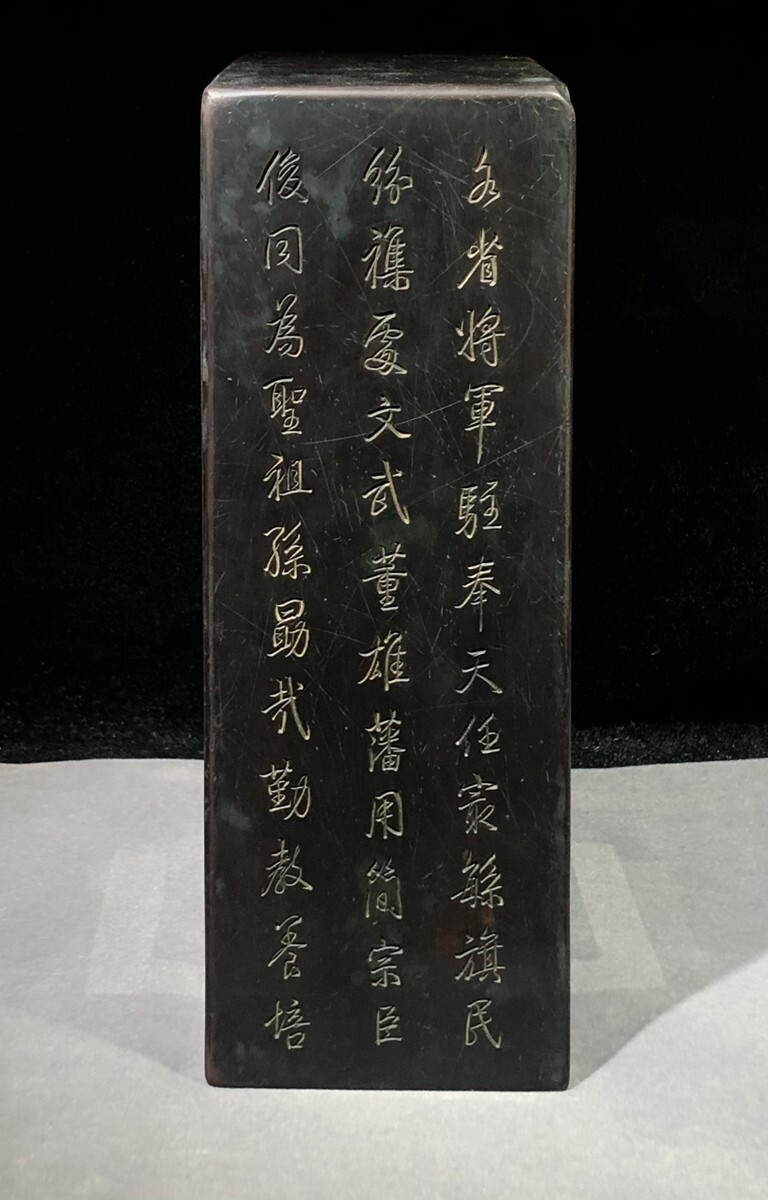 各省將軍駐奉天任㝡緐旗民
紛襍處文武董雄藩用簡宗臣
俊同為聖祖孫勗哉勤教養培